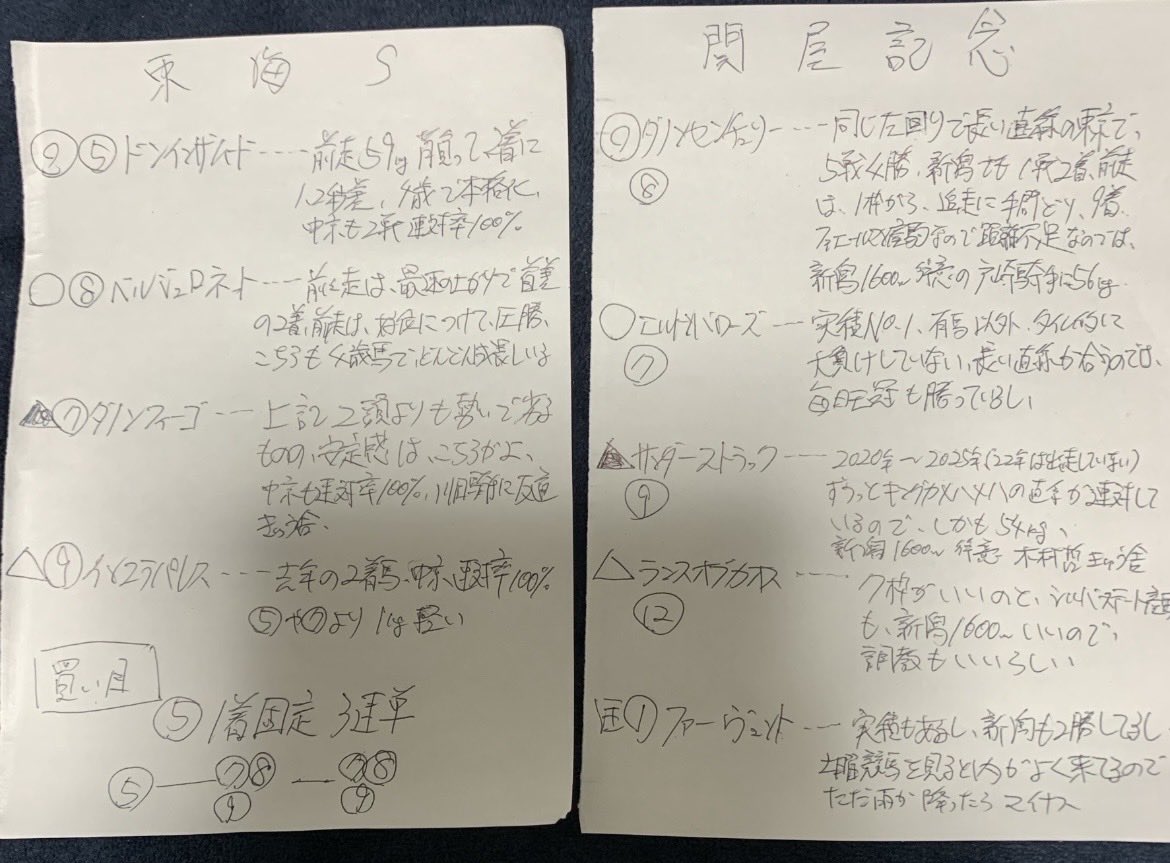 東海S
◎⑤ドンインザムード……前走59kg背負って、1着に
1.2秒差、4歳で本格化、
中京も2戦連対率100%
○⑧ベルジュロネット……前々走は、最速の上がりで首差
の2着、前走は、好位につけて、圧勝、
こちらも4歳馬で、どんどん成長している
▲⑦ダノンフィーゴ……上記2頭よりも勢いで劣る
ものの、安定感は、こちらがよく、
中京も連対率100%、川田騎手に
△⑨インユラパレス……去年の2着馬、中京、連対率100%
⑤や⑦より1kg軽い
買い目
⑤1着固定 3連単
⑤ー⑦⑧⑨ー⑦⑧⑨
関屋記念
◎ダノンセンチュリー……同じ左回りで長い直線の東京で、
⑧
5戦4勝、新潟でも1戦2着、前走
は、1枠から、追走に手間どり、9着、
なので距離不足なのでは、
新潟1600m得意の戸崎騎手に56kg
○エルトンバローズ……実績No.1、有馬以外、タイム的に
⑦
大負けしていない、長い直線が合うのでは、
毎日王冠も勝っているし、
▲サンダーストラック……2020年〜2025年('22年は出走していない)
⑨
ずうっとキングカメハメハの直系が連対して
いるので、しかも54kg、
新潟1600m得意 木村哲也きゅう舎
△ランスオブカオス……7枠がいいのと、シルバーステート産駒
⑫
も、新潟1600mいいので、
調教もいいらしい
注①ファーヴェント……実績もあるし、新潟も2勝してるし
土曜競馬を見ると内がよく来てるので
ただ雨が降ったらマイナス